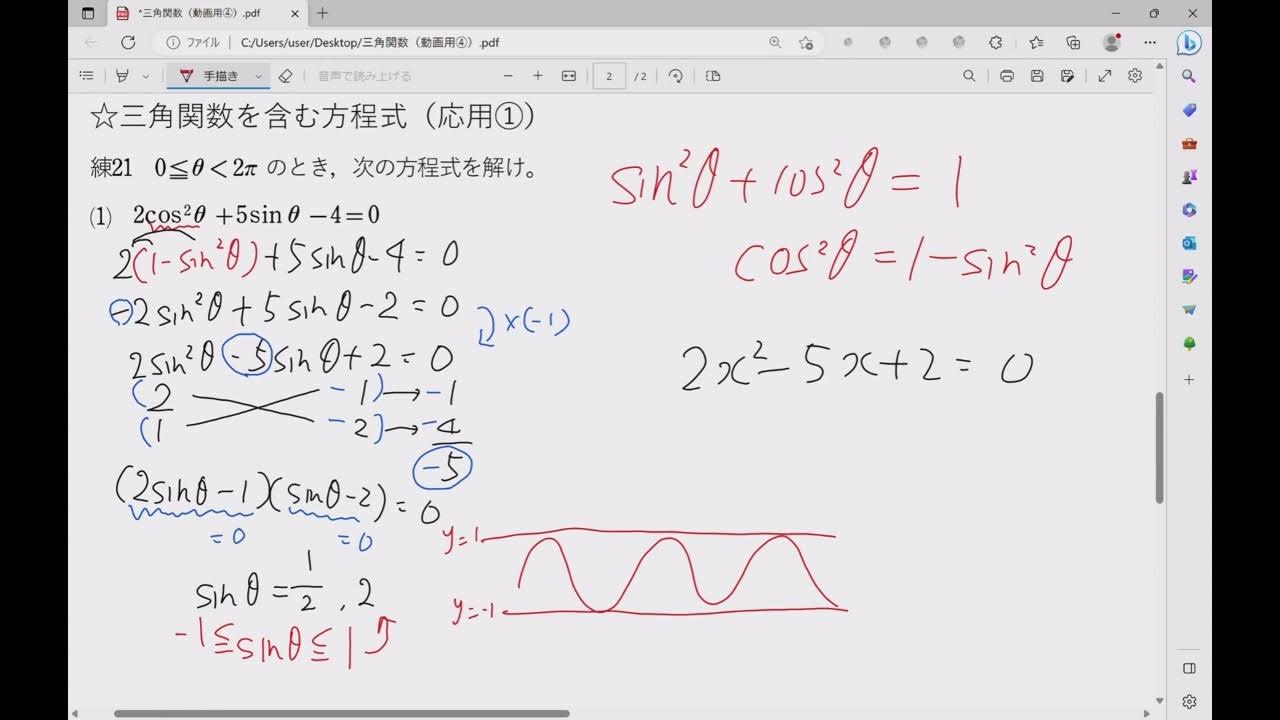 *三角関数（動画用④）.pdf
ファイル C:/Users/user/Desktop/三角関数（動画用④）.pdf
手描き 音声で読み上げる 2 / 2
☆三角関数を含む方程式（応用①）
練21 0≦θ<2π のとき，次の方程式を解け。
(1) 2cos²θ+5sinθ−4=0
2(1-sin²θ)+5sinθ-4=0
-2sin²θ+5sinθ-2=0
×(-1)
2sin²θ-5sinθ+2=0
(2 -1)→-1
(1 -2)→-4
-5
(2sinθ-1)(sinθ-2)=0
=0 =0
sinθ=1/2, 2
-1≦sinθ≦1
sin²θ+cos²θ=1
cos²θ=1-sin²θ
2x²-5x+2=0
y=1
y=-1